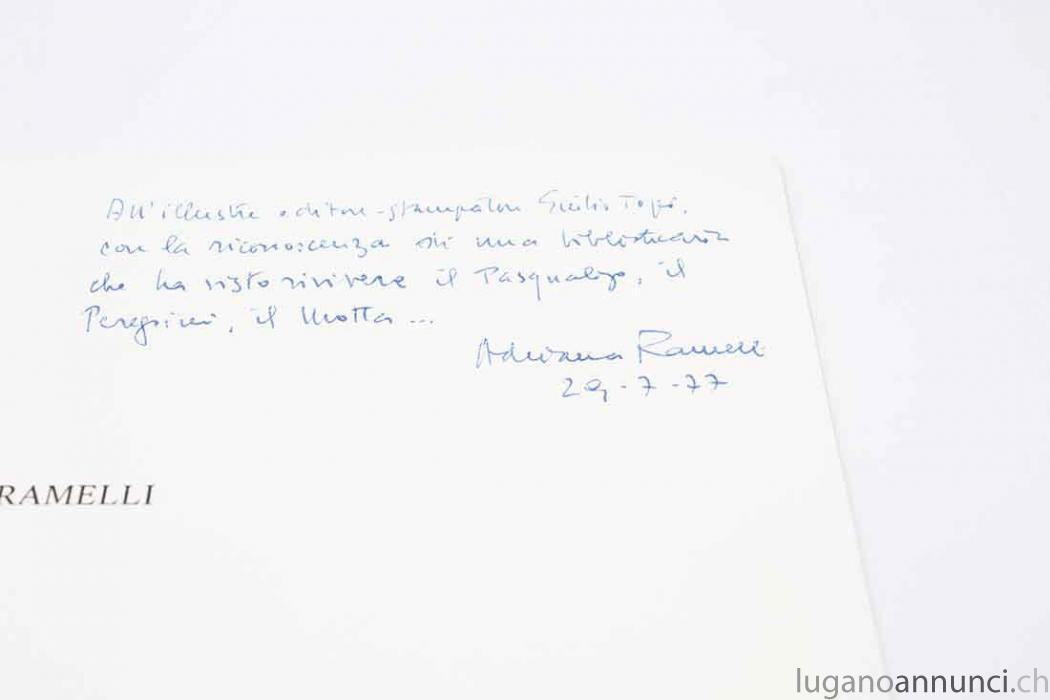 All'illustre editore-stampatore Giulio Topi,
con la riconoscenza di una bibliotecaria
che ha visto rivivere il Pasqualigo, il
Peregrini, il Motta ...
Adriana Ramelli
29-7-77
RAMELLI
luganoannunci.ch